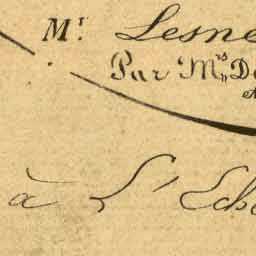 Mr. Lesne
Par Mrs De
à L'Eche